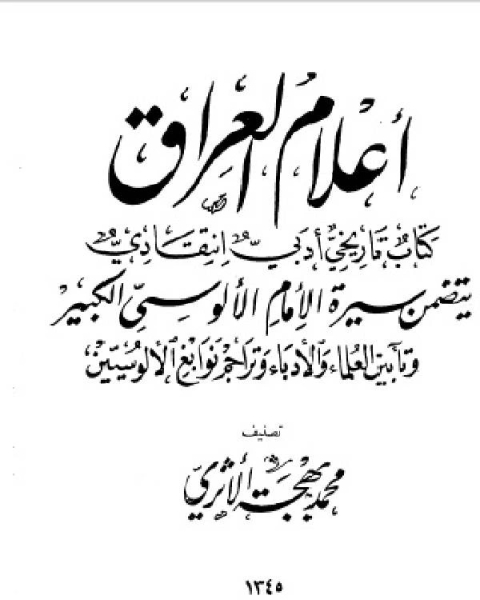 أعلام العراق
كتاب تاريخي أدبي انتقادي
يتضمن سيرة الإمام الألوسي الكبير
وتأبين العلماء والأدباء وتراجم نوابغ الألوسيين
تصنيف
محمد بهجة الأثري
١٣٤٥